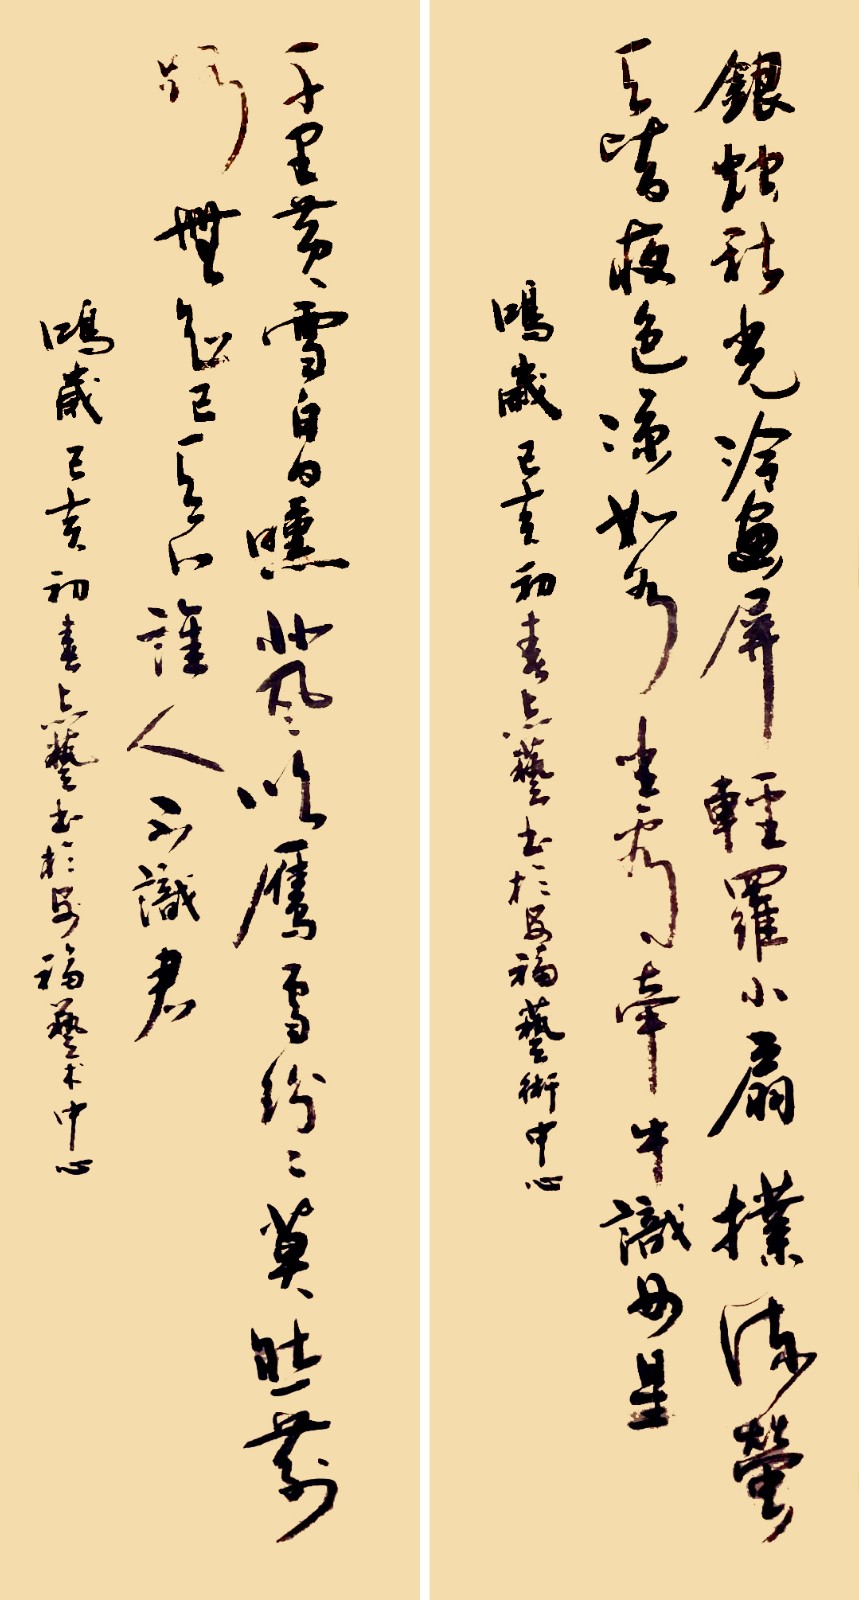 銀烛秋光冷畫屏輕羅小扇撲流螢
天階夜色凉如水坐看牽牛識女星
鳴歲己亥初春藝书於安福藝術中心
千里黄雲白日曛北風吹雁雪紛〻莫愁前
路無知己天下誰人不識君
鳴歲己亥初春藝书於安福藝术中心